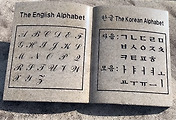 The English Alphabet
A B C D E F
G H I J K L
M N O P Q R
S T U V W
X Y Z
한글 The Korean Alphabet
자음: ㄱ ㄴ ㄷ ㄹ ㅁ
ㅂ ㅅ ㅇ ㅈ ㅊ
ㅋ ㅌ ㅍ ㅎ
모음: ㅏ ㅑ ㅓ ㅕ ㅗ
ㅛ ㅜ ㅠ ㅡ ㅣ